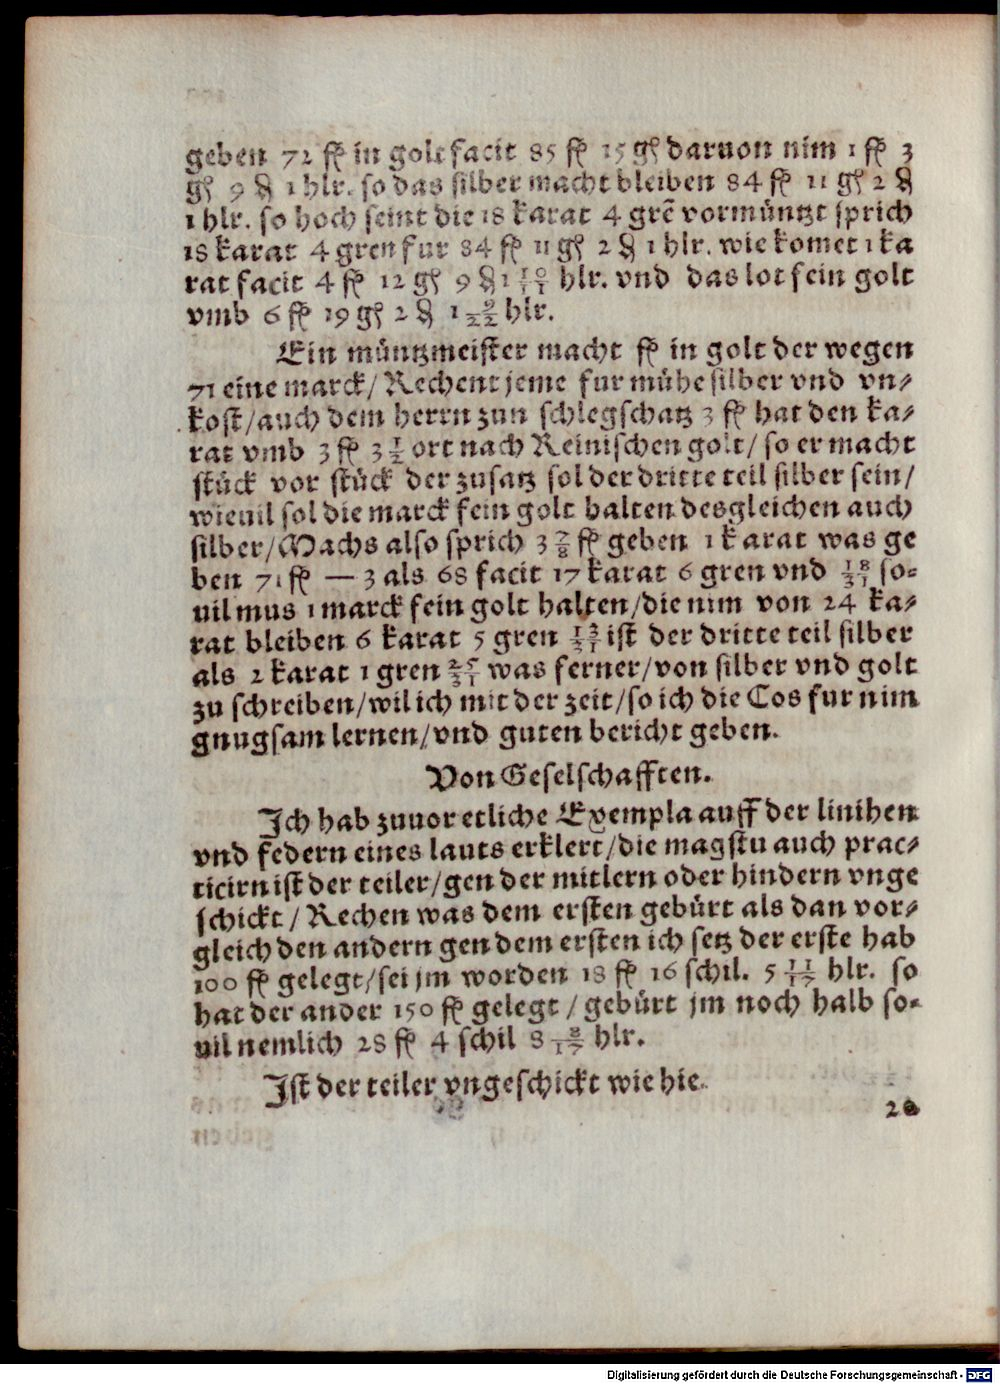 geben 72 fl in golt facit 85 fl 15 gl daruon nim 1 fl 3
gl 9 ₰ 1 hlr. so das silber macht bleiben 84 fl 11 gl 2 ₰
1 hlr. so hoch seint die 18 karat 4 grē vormüntzt sprich
18 karat 4 gren fur 84 fl 11 gl 2 ₰ 1 hlr. wie komet 1 ka
rat facit 4 fl 12 gl 9 ₰ 1 10/11 hlr. vnd das lot fein golt
vmb 6 fl 19 gl 2 ₰ 1 9/22 hlr.
Ein müntzmeister macht fl in golt der wegen
71 eine marck/ Rechent jeme fur mühe silber vnd vn⸗
kost/auch dem herrn zun schlegschatz 3 fl hat den ka⸗
rat vmb 3 fl 3 1/2 ort nach Reinischen golt/ so er macht
stück vor stück der zusatz sol der dritte teil silber sein/
wieuil sol die marck fein golt halten desgleichen auch
silber/Machs also sprich 3 7/8 fl geben 1 karat was ge
ben 71 fl — 3 als 68 facit 17 karat 6 gren vnd 18/31 so⸗
uil mus 1 marck fein golt halten/die nim von 24 ka⸗
rat bleiben 6 karat 5 gren 13/31 ist der dritte teil silber
als 2 karat 1 gren 25/31 was ferner/von silber vnd golt
zu schreiben/wil ich mit der zeit/so ich die Cos fur nim
gnugsam lernen/vnd guten bericht geben.
Von Geselschafften.
Ich hab zuuor etliche Exempla auff der linihen
vnd federn eines lauts erklert/die magstu auch prac⸗
ticirn ist der teiler/gen der mitlern oder hindern vnge
schickt/ Rechen was dem ersten gebürt als dan vor⸗
gleich den andern gen dem ersten ich setz der erste hab
100 fl gelegt/sei jm worden 18 fl 16 schil. 5 11/17 hlr. so
hat der ander 150 fl gelegt/ gebürt jm noch halb so⸗
uil nemlich 28 fl 4 schil 8 8/17 hlr.
Ist der teiler vngeschickt wie hie.
20
Digitalisierung gefördert durch die Deutsche Forschungsgemeinschaft - DFG